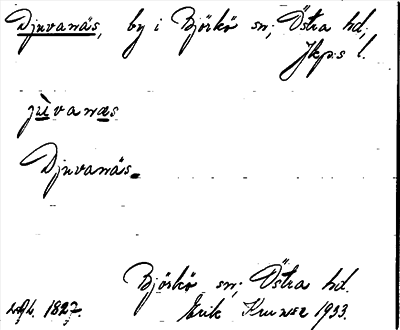 Djuvanäs, by i Björkö sn; Östra hd,
Jkp:s l.
jùvanæs
Djuvanäs.
Björkö sn; Östra hd.
1827. Erik 1933.